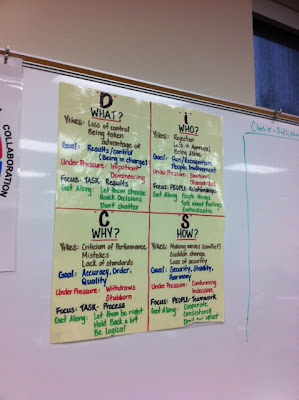 COLLABORATION
D
WHAT?
Yikes: Loss of control
Being taken
advantage of
Goal: Results/control
(Being in charge)
Under Pressure: Impatient
Domineering
Focus: TASK- Results
Get Along: Let them choose
Quick Decisions
Don't chatter
i
WHO?
Yikes: Rejection
Loss of Approval
Being Alone
Goal: Fun/Recognition
People Involvement
Under Pressure: Emotional
Disorganized
Focus: PEOPLE- Relationships
Get Along: People things
Talk about Feelings
Enthusiastic
C
WHY?
Yikes: Criticism of Performance
Mistakes
Lack of standards
Goal: Accuracy, Order,
Quality
Under Pressure: Withdraws
Stubborn
Focus: TASK- Process
Get Along: Let them be right
Hold Back a bit
Be logical
S
HOW?
Yikes: Making waves (conflict)
Sudden change
Loss of security
Goal: Security, Stability,
Harmony
Under Pressure: Conforming
Indecisive
Focus: PEOPLE-Teamwork
Get Along: Cooperate
Consistency
Don't upset